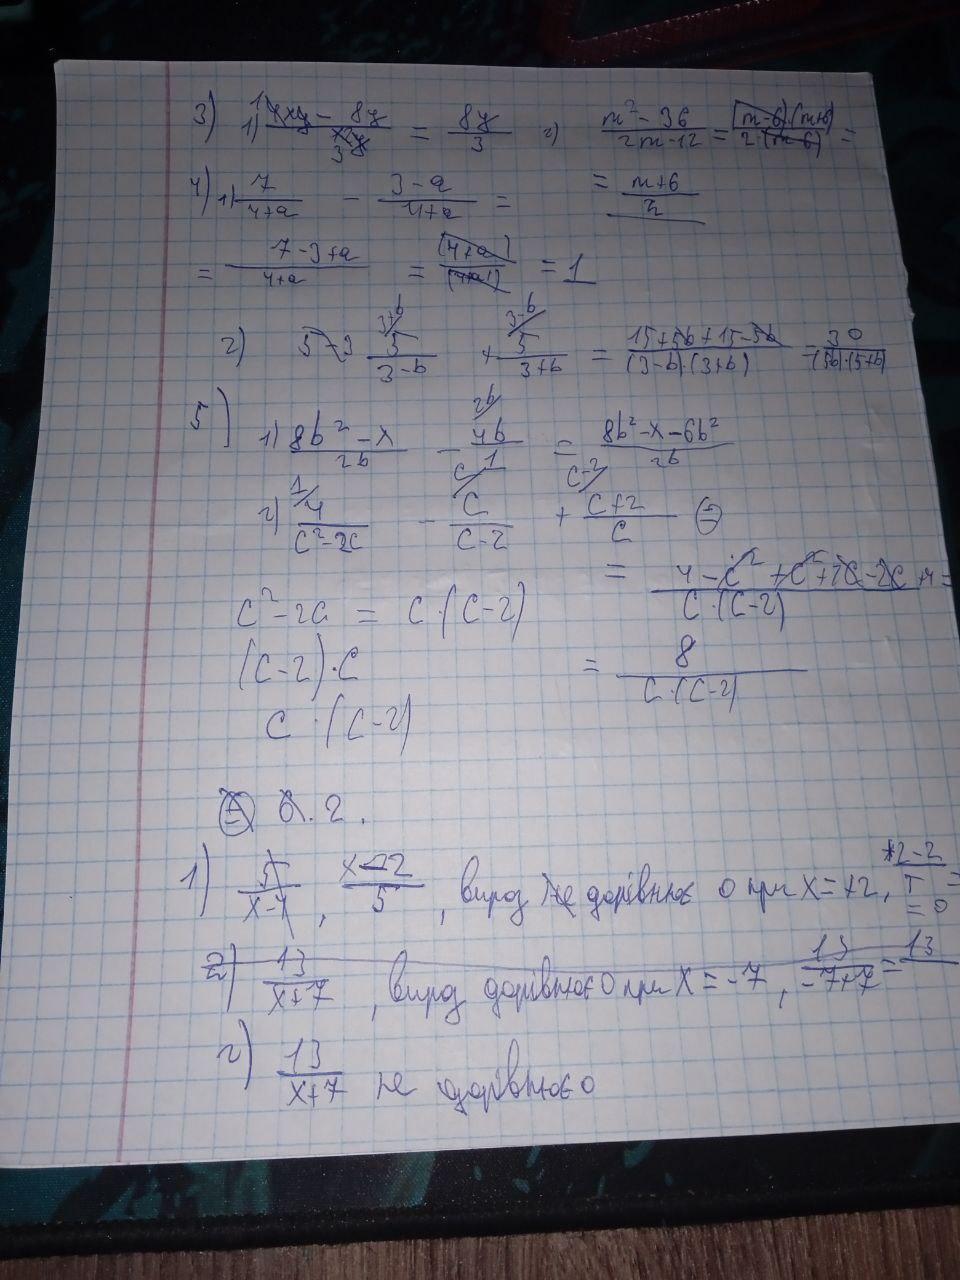 3) 1) (4xy - 8y)/(3x²y) = 8y/3 2) (m² - 36)/(2m - 12) = ((m-6)·(m+6))/(2·(m-6)) =
4) 1) 7/(4+a) - (3-a)/(4+a) = = (m+6)/2
= (7-3+a)/(4+a) = (4+a)/(4+a) = 1
2) 5/(3-b) + 5/(3+b) = (15+5b+15-5b)/((3-b)·(3+b)) = 30
5) 1) (8b² - x)/(2b) - 4b/1 = (8b²-x-6b²)/(2b)
2) 4/(c²-2c) - c/(c-2) + (c+2)/c =
= (4-c²+c²+2c-2c+4)/(c·(c-2)) =
c²-2c = c·(c-2)
(c-2)·c = 8/(c·(c-2))
c·(c-2)
6.2.
1) 5/(x-4), (x-2)/5, вираз не дорівнює 0 при x=+2, = 0
2) 13/(x+7), вираз дорівнює 0 при x=-7, 13/(-7+7) = 13
2) 13/(x+7) не дорівнює 0